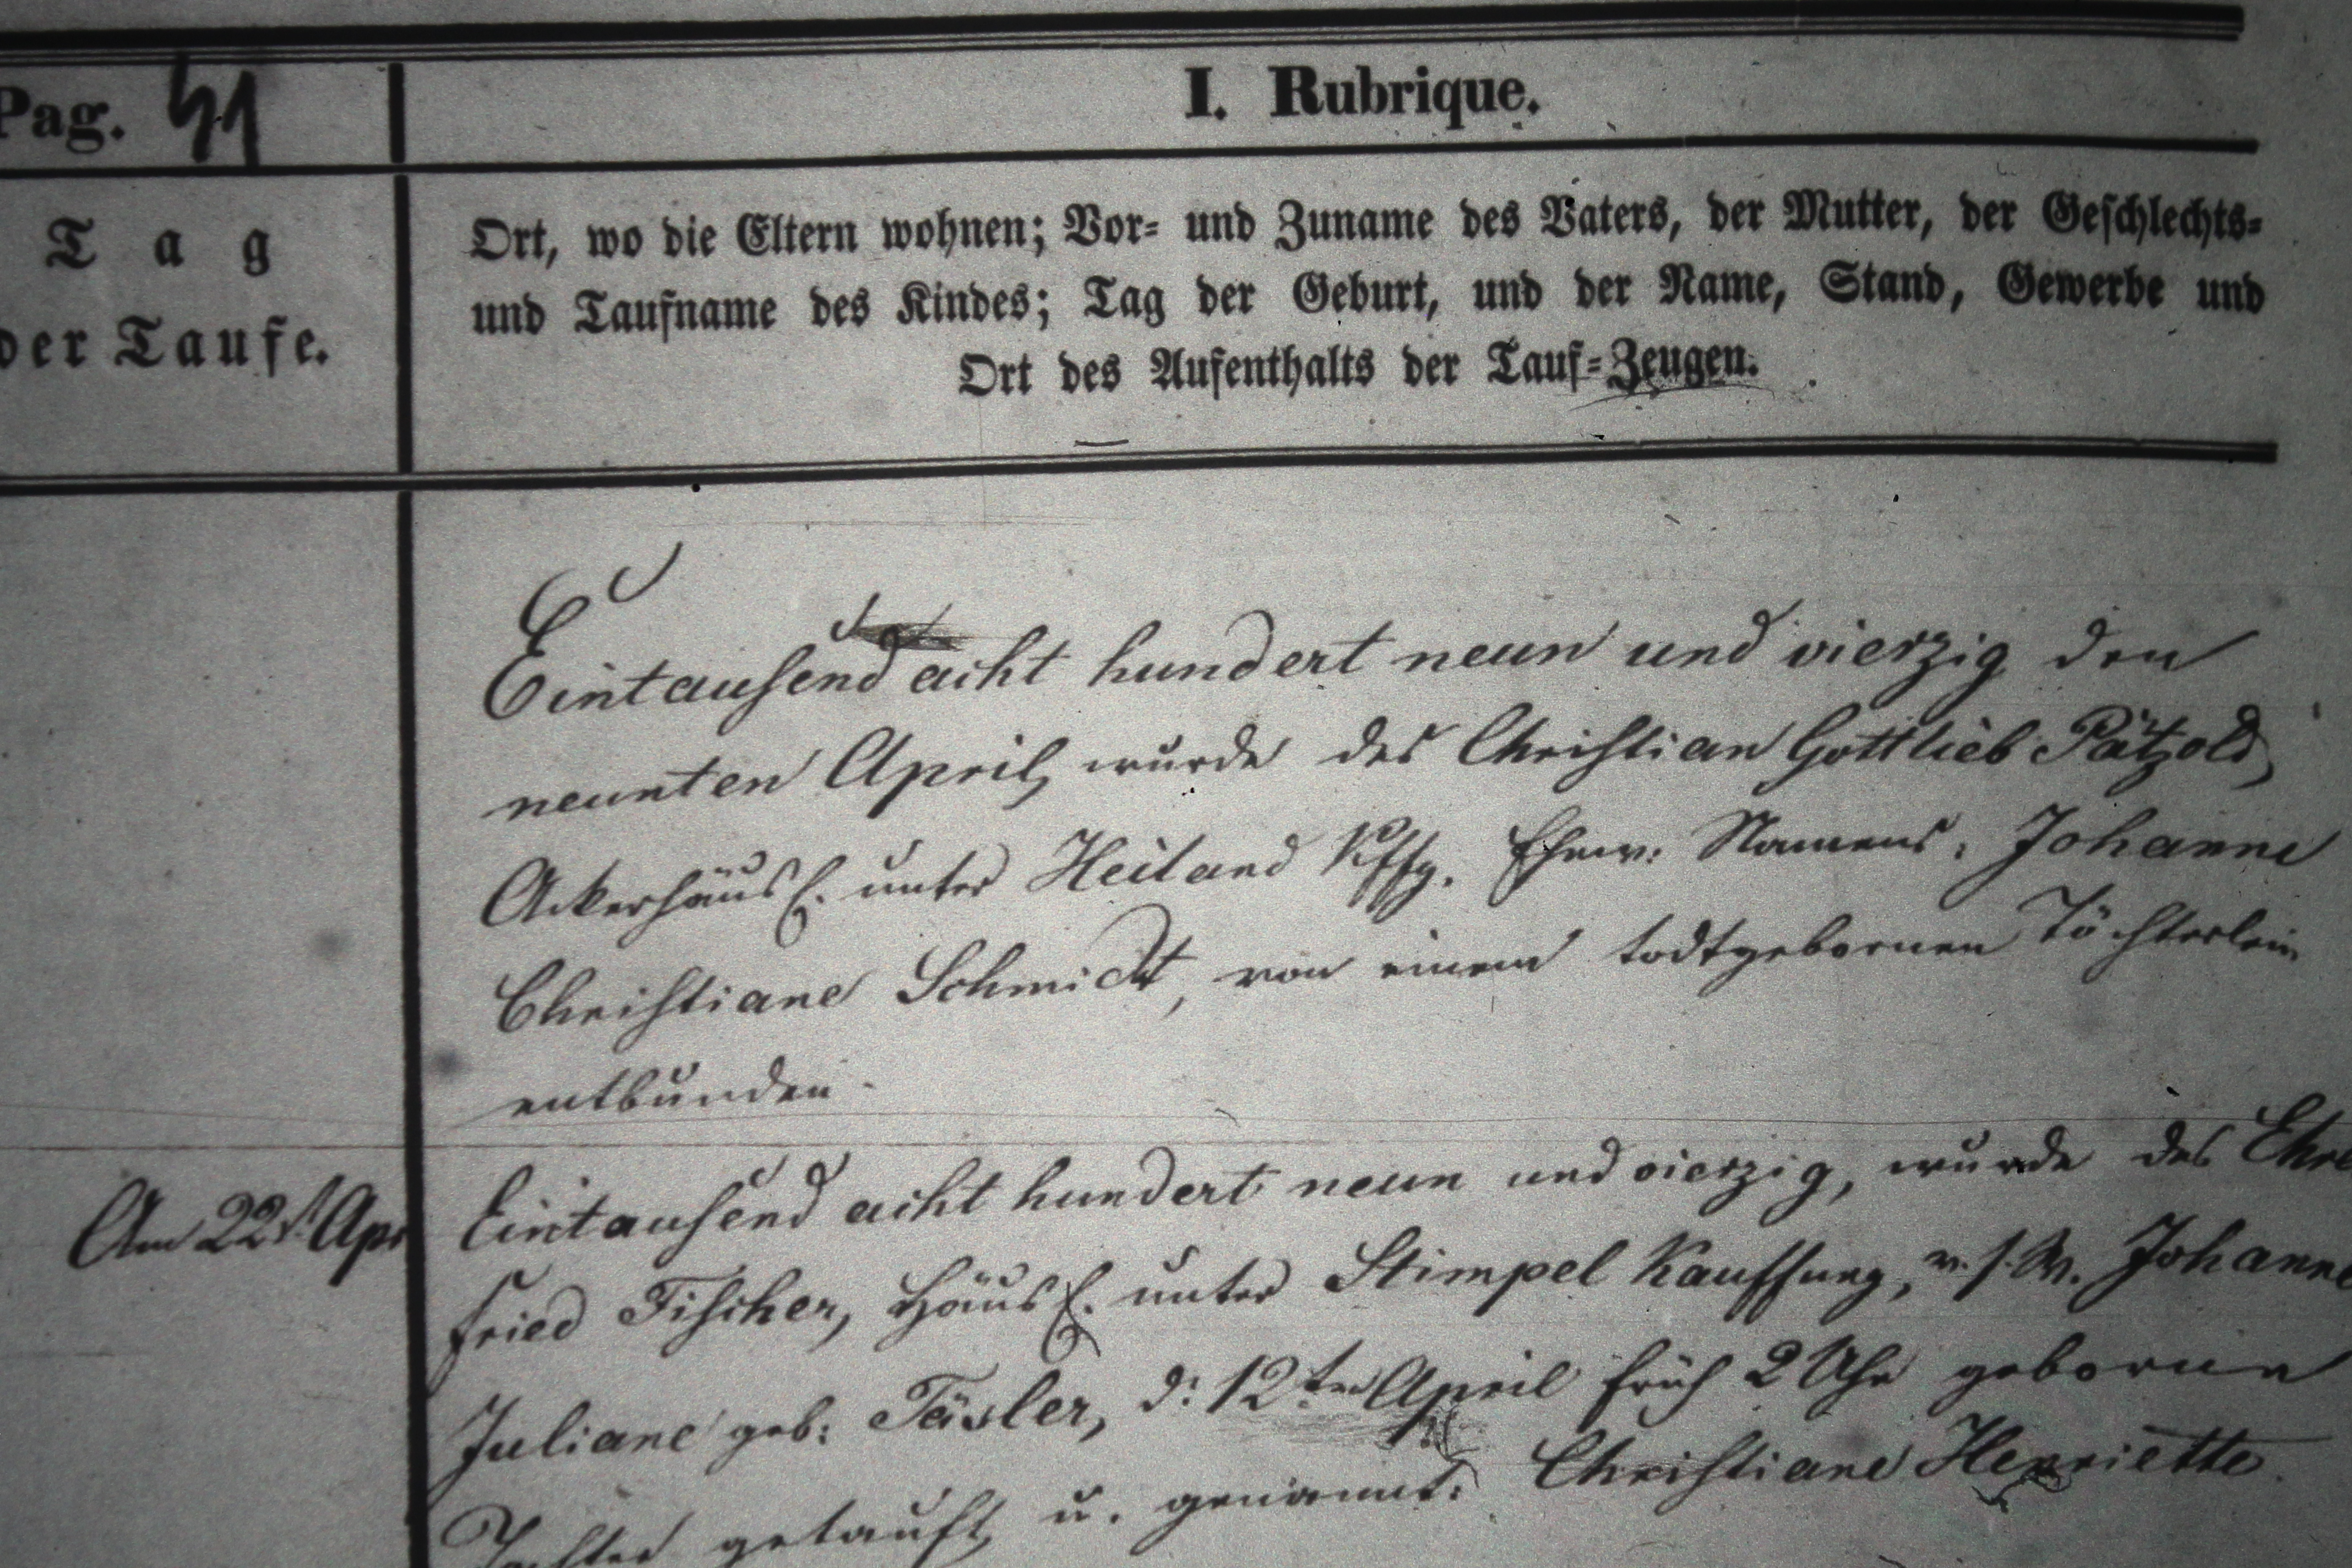 Pag. 41
I. Rubrique.
Tag
der Taufe.
Ort, wo die Eltern wohnen; Vor- und Zuname des Vaters, der Mutter, der Geschlechts-
und Taufname des Kindes; Tag der Geburt, und der Name, Stand, Gewerbe und
Ort des Aufenthalts der Tauf-Zeugen.
Eintausend acht hundert neun und vierzig den
neunten April, wurde des Christian Gottlieb Pätzold,
Ackerhäusl. unter Heiland Kffg. Ehew. Namens: Johanne
Christiane Schmidt, von einem todtgebornen Töchterlein
entbunden.
Am 22t. Apr
Eintausend acht hundert neun und vierzig, wurde des Ehre
fried Fischer, Häusl. unter Stimpel Kauffung, v. s. W. Johanne
Juliane geb: Täsler, d: 12ten April früh 2 Uhr geborne
Tochter getauft u. genannt: Christiane Henriette.